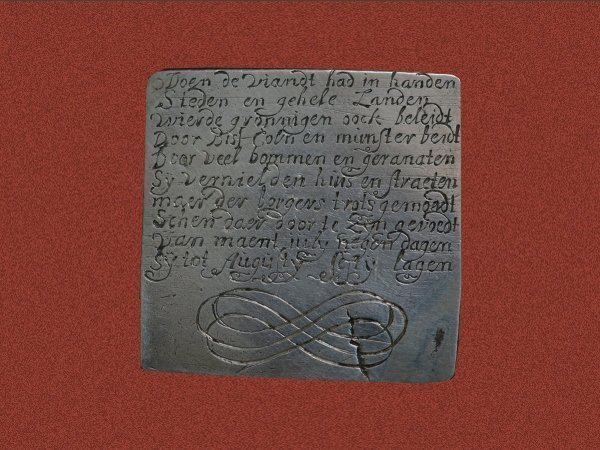 Doen de viandt had in handen
Steden en gehele Landen
Wierde gronnigen oock beleidt
Door Bisf Coln en munster beidt
Door veel bommen en geranaten
Sy vernielden huis en straeten
maer der borgers trots gemoedt
Scheen daer door te
van maent july negen dagen
Sy tot Augusty lagen